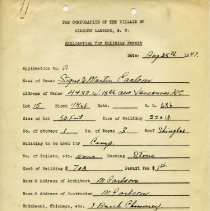 THE CORPORATION OF THE VILLAGE OF
GIBSONS LANDING, B. C.
Application for Building Permit
Date, Aug 25th 1947.
Application No. 17
Name of Owner Signe & Martin Carlson
Address of Owner 4432 W 15th ave Vancouver BC
Lot 15 Block D.L. 686
Size of Lot 50 feet Size of Building 22x18
No. of storeys 1 No. of Rooms 3 Roof Shingles
Building to be used for Camp.
No. of Toilets, etc. none Heating Stove
Cost of Building $ 700 Permit Fee $1.00
Name & Address of Architect M Carlson
Name & Address of Contractor M Carlson
Brickwork, Chimneys, etc. 1 Brick Chimney